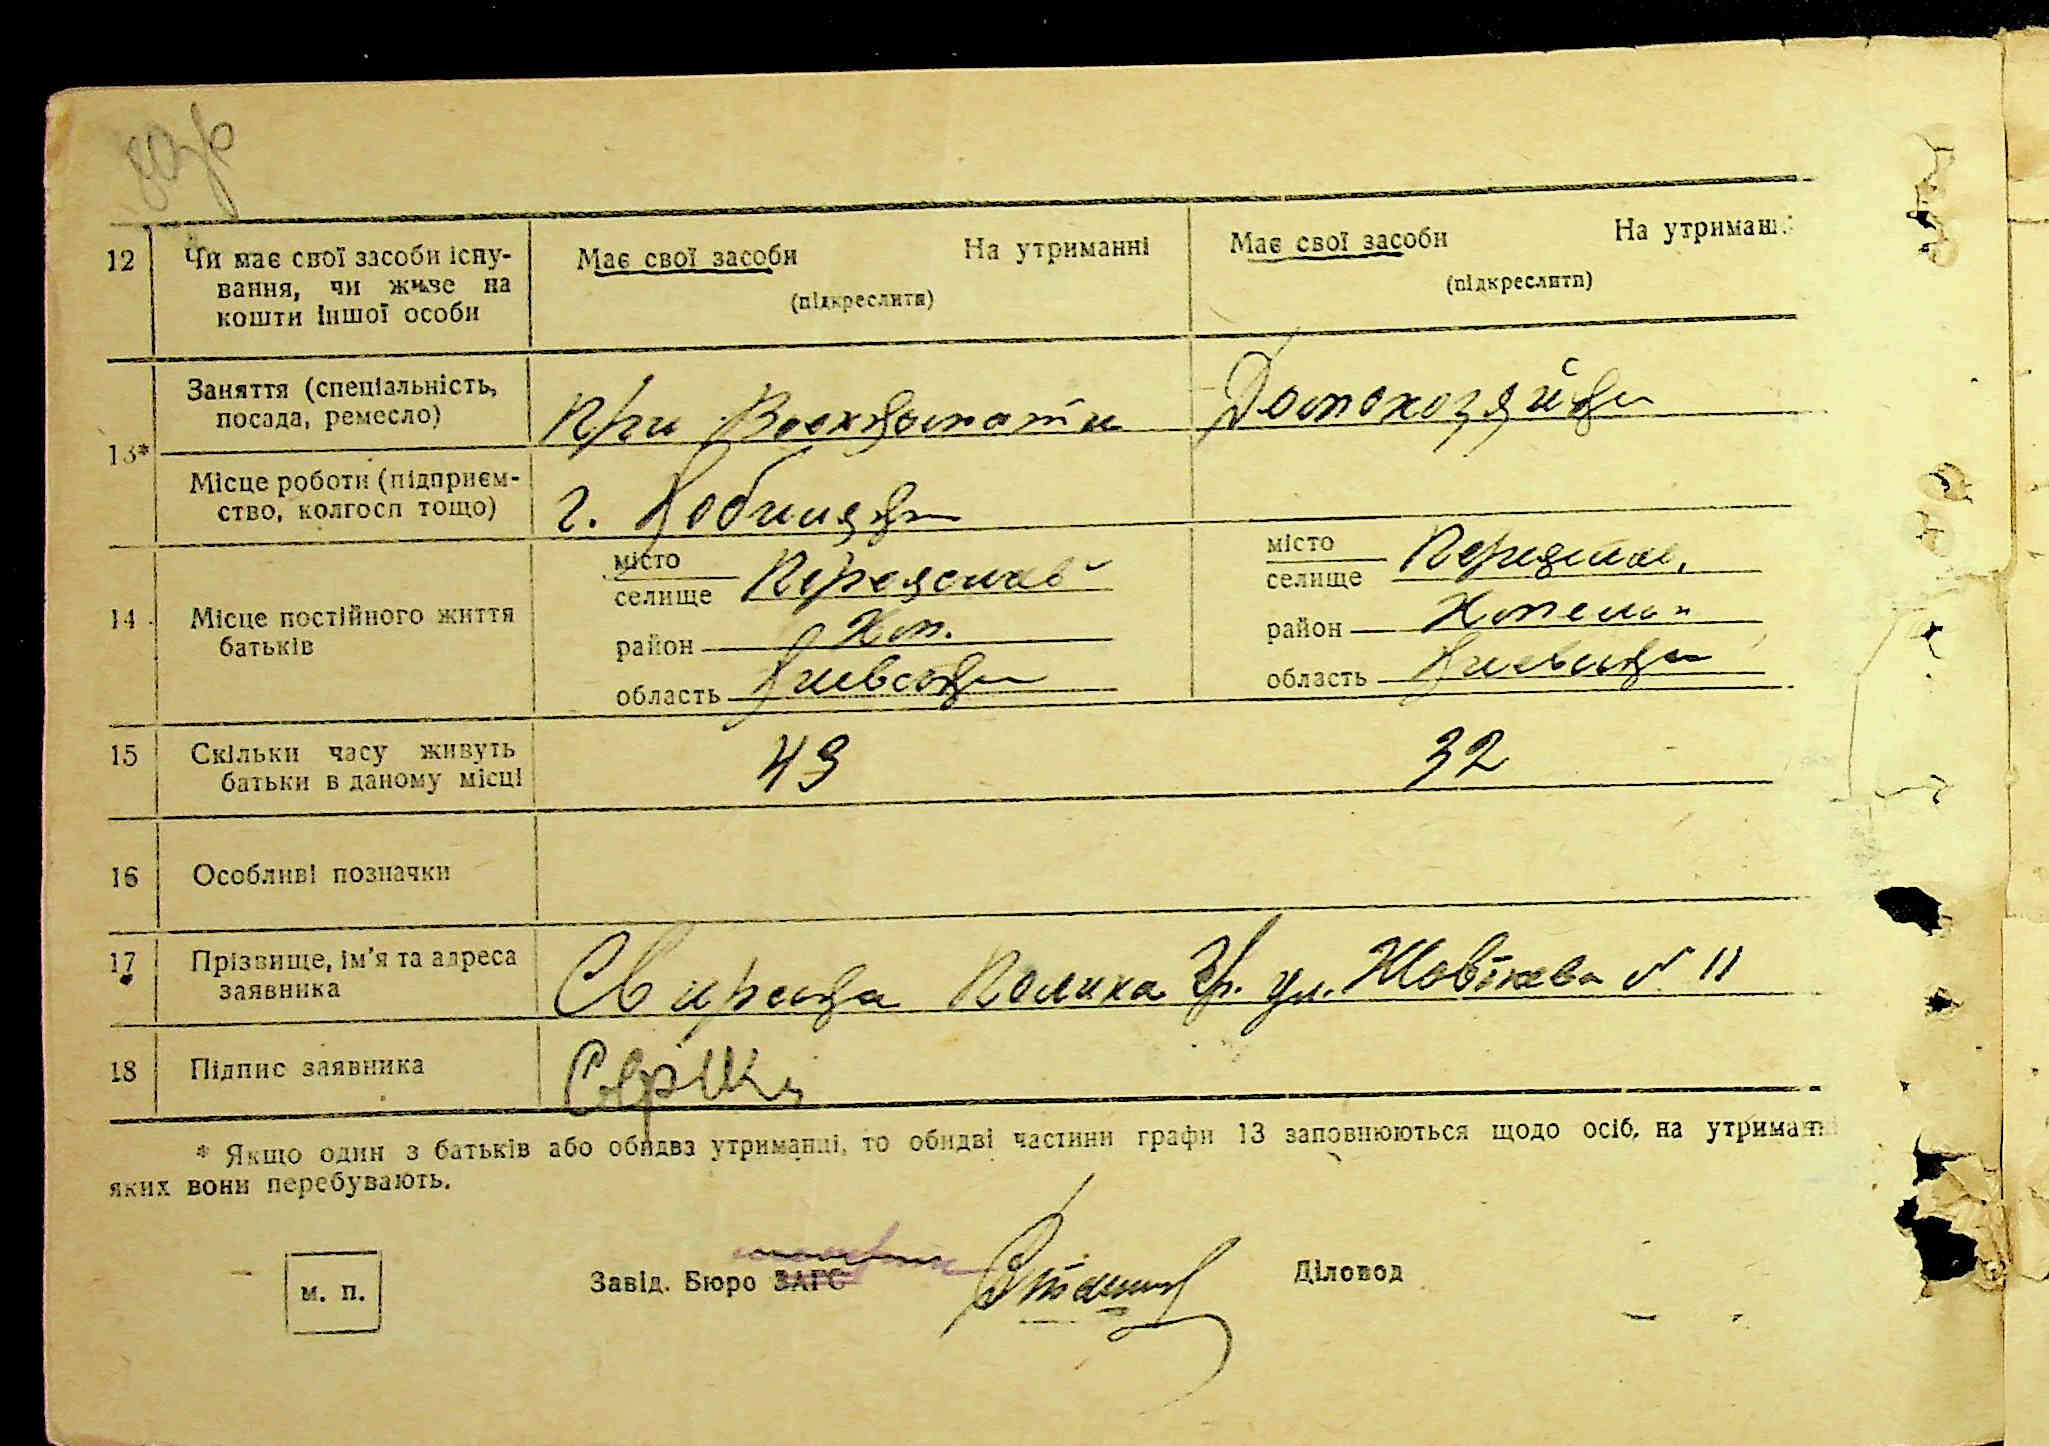 12 Чи має свої засоби існу-
вання, чи живе на
кошти іншої особи
Має свої засоби На утриманні
(підкреслити)
Має свої засоби На утриманні
(підкреслити)
13*
Заняття (спеціальність,
посада, ремесло)
при Военкомати
Домохозяйка
Місце роботи (підприєм-
ство, колгосп тощо)
г.
14 Місце постійного життя
батьків
місто
селище Переяслав
район Хм.
область Киевська
місто
селище Переяслав
район
область Киевська
15 Скільки часу живуть
батьки в даному місці
43 32
16 Особливі позначки
17 Прізвище, ім'я та адреса
заявника
Свирська Полина Гр. ул. Жовтнева № 11
18 Підпис заявника
* Якщо один з батьків або обидва утриманці, то обидві частини графи 13 заповнюються щодо осіб, на утриманні
яких вони перебувають.
м. п.
Завід. Бюро ЗАГС
Діловод